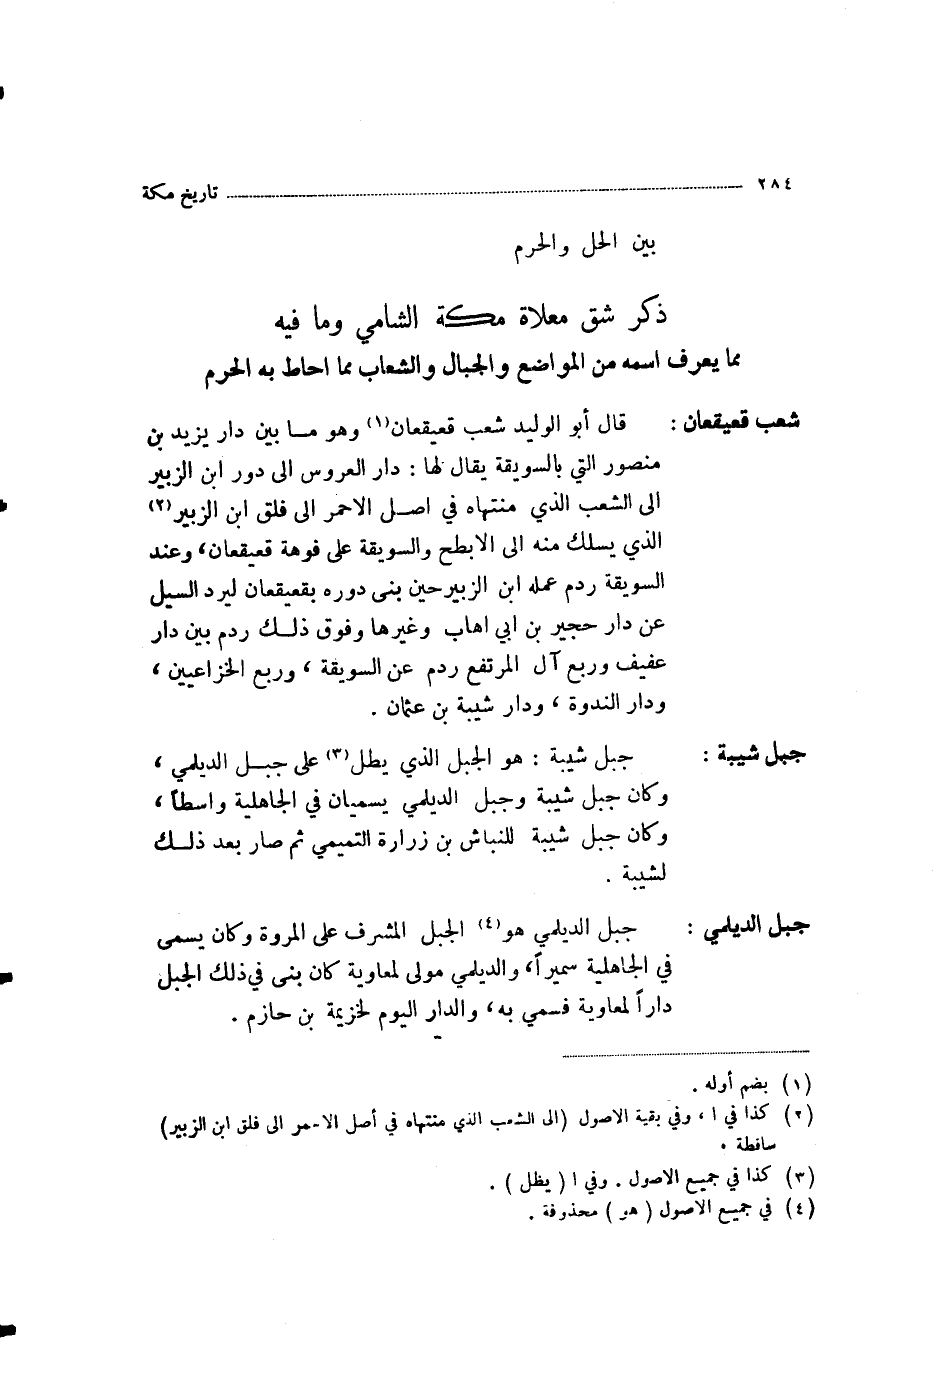 ٢٨٤ تاريخ مكة
بين الحل والحرم
ذكر شق معلاة مكة الشامي وما فيه
مما يعرف اسمه من المواضع والجبال والشعاب مما احاط به الحرم
شعب قعيقعان : قال أبو الوليد شعب قعيقعان(١) وهو ما بين دار يزيد بن
منصور التي بالسويقة يقال لها : دار العروس الى دور ابن الزبير
الى الشعب الذي منتهاه في اصل الاحمر الى فلق ابن الزبير(٢)
الذي يسلك منه الى الابطح والسويقة على فوهة قعيقعان، وعند
السويقة ردم عمله ابن الزبير حين بنى دوره بقعيقعان ليرد السيل
عن دار حجير بن ابي اهاب وغيرها وفوق ذلك ردم بين دار
عفيف وربع آل المرتفع ردم عن السويقة ، وربع الخزاعيين ،
ودار الندوة ، ودار شيبة بن عثمان .
جبل شيبة : جبل شيبة : هو الجبل الذي يطل(٣) على جبل الديلمي ،
وكان جبل شيبة وجبل الديلمي يسميان في الجاهلية واسطاً ،
وكان جبل شيبة للنباش بن زرارة التميمي ثم صار بعد ذلك
لشيبة .
جبل الديلمي : جبل الديلمي هو(٤) الجبل المشرف على المروة وكان يسمى
في الجاهلية سميراً، والديلمي مولى لمعاوية كان بنى في ذلك الجبل
داراً لمعاوية فسمي به، والدار اليوم لخزيمة بن حازم .
(١) بضم أوله .
(٢) كذا في ا ، وفي بقية الاصول (الى الشعب الذي منتهاه في أصل الاحمر الى فلق ابن الزبير)
ساقطة .
(٣) كذا في جميع الاصول . وفي ا ( يظل ) .
(٤) في جميع الاصول ( هو ) محذوفة .